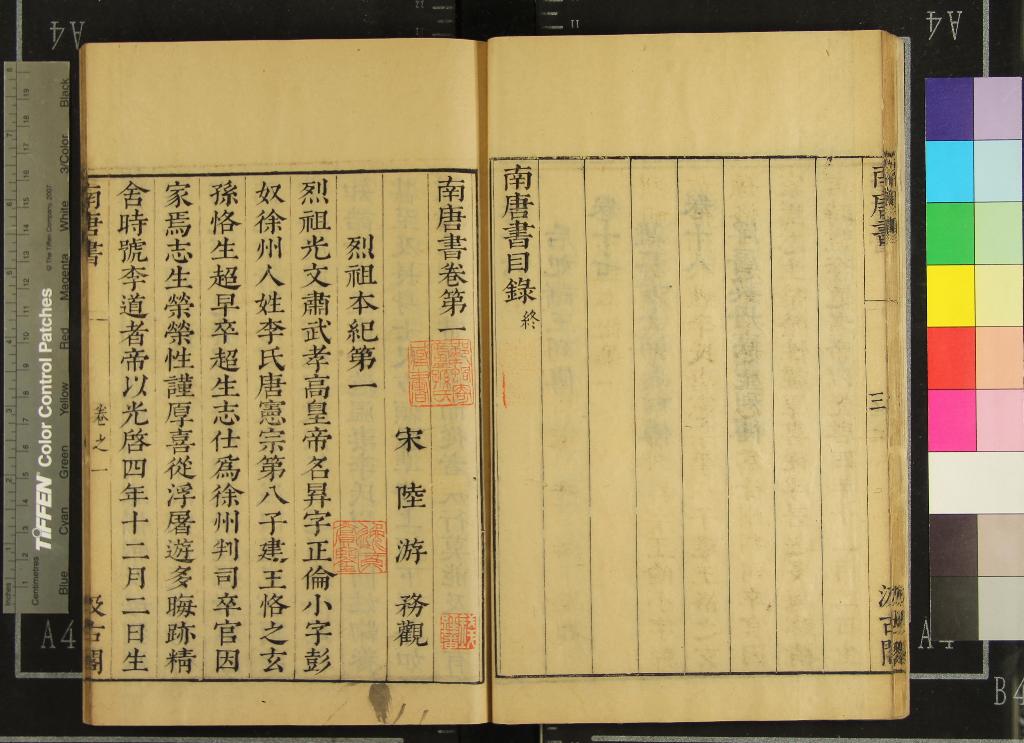 南唐書
三
汲古閣
南唐書目錄終
南唐書卷第一
宋陸游務觀
烈祖本紀第一
烈祖光文肅武孝高皇帝名昪字正倫小字彭
奴徐州人姓李氏唐憲宗第八子建王恪之玄
孫恪生超早卒超生志仕爲徐州判司卒官因
家焉志生榮榮性謹厚喜從浮屠遊多晦跡精
舍時號李道者帝以光啓四年十二月二日生
南唐書
卷之一
一
汲古閣
A4
A4
A4
A4
B4
TIFFEN Color Control Patches
© The Tiffen Company, 2007
Inches
Centimetres
Blue
Cyan
Green
Yellow
Red
Magenta
White
3/Color
Black